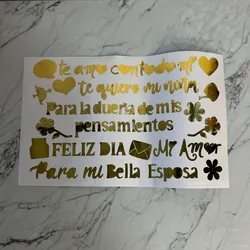 te amo con todo mi
te quiero mi niña
Para la dueña de mis
pensamientos
FELIZ DIA Mi Amor
Para mi Bella Esposa